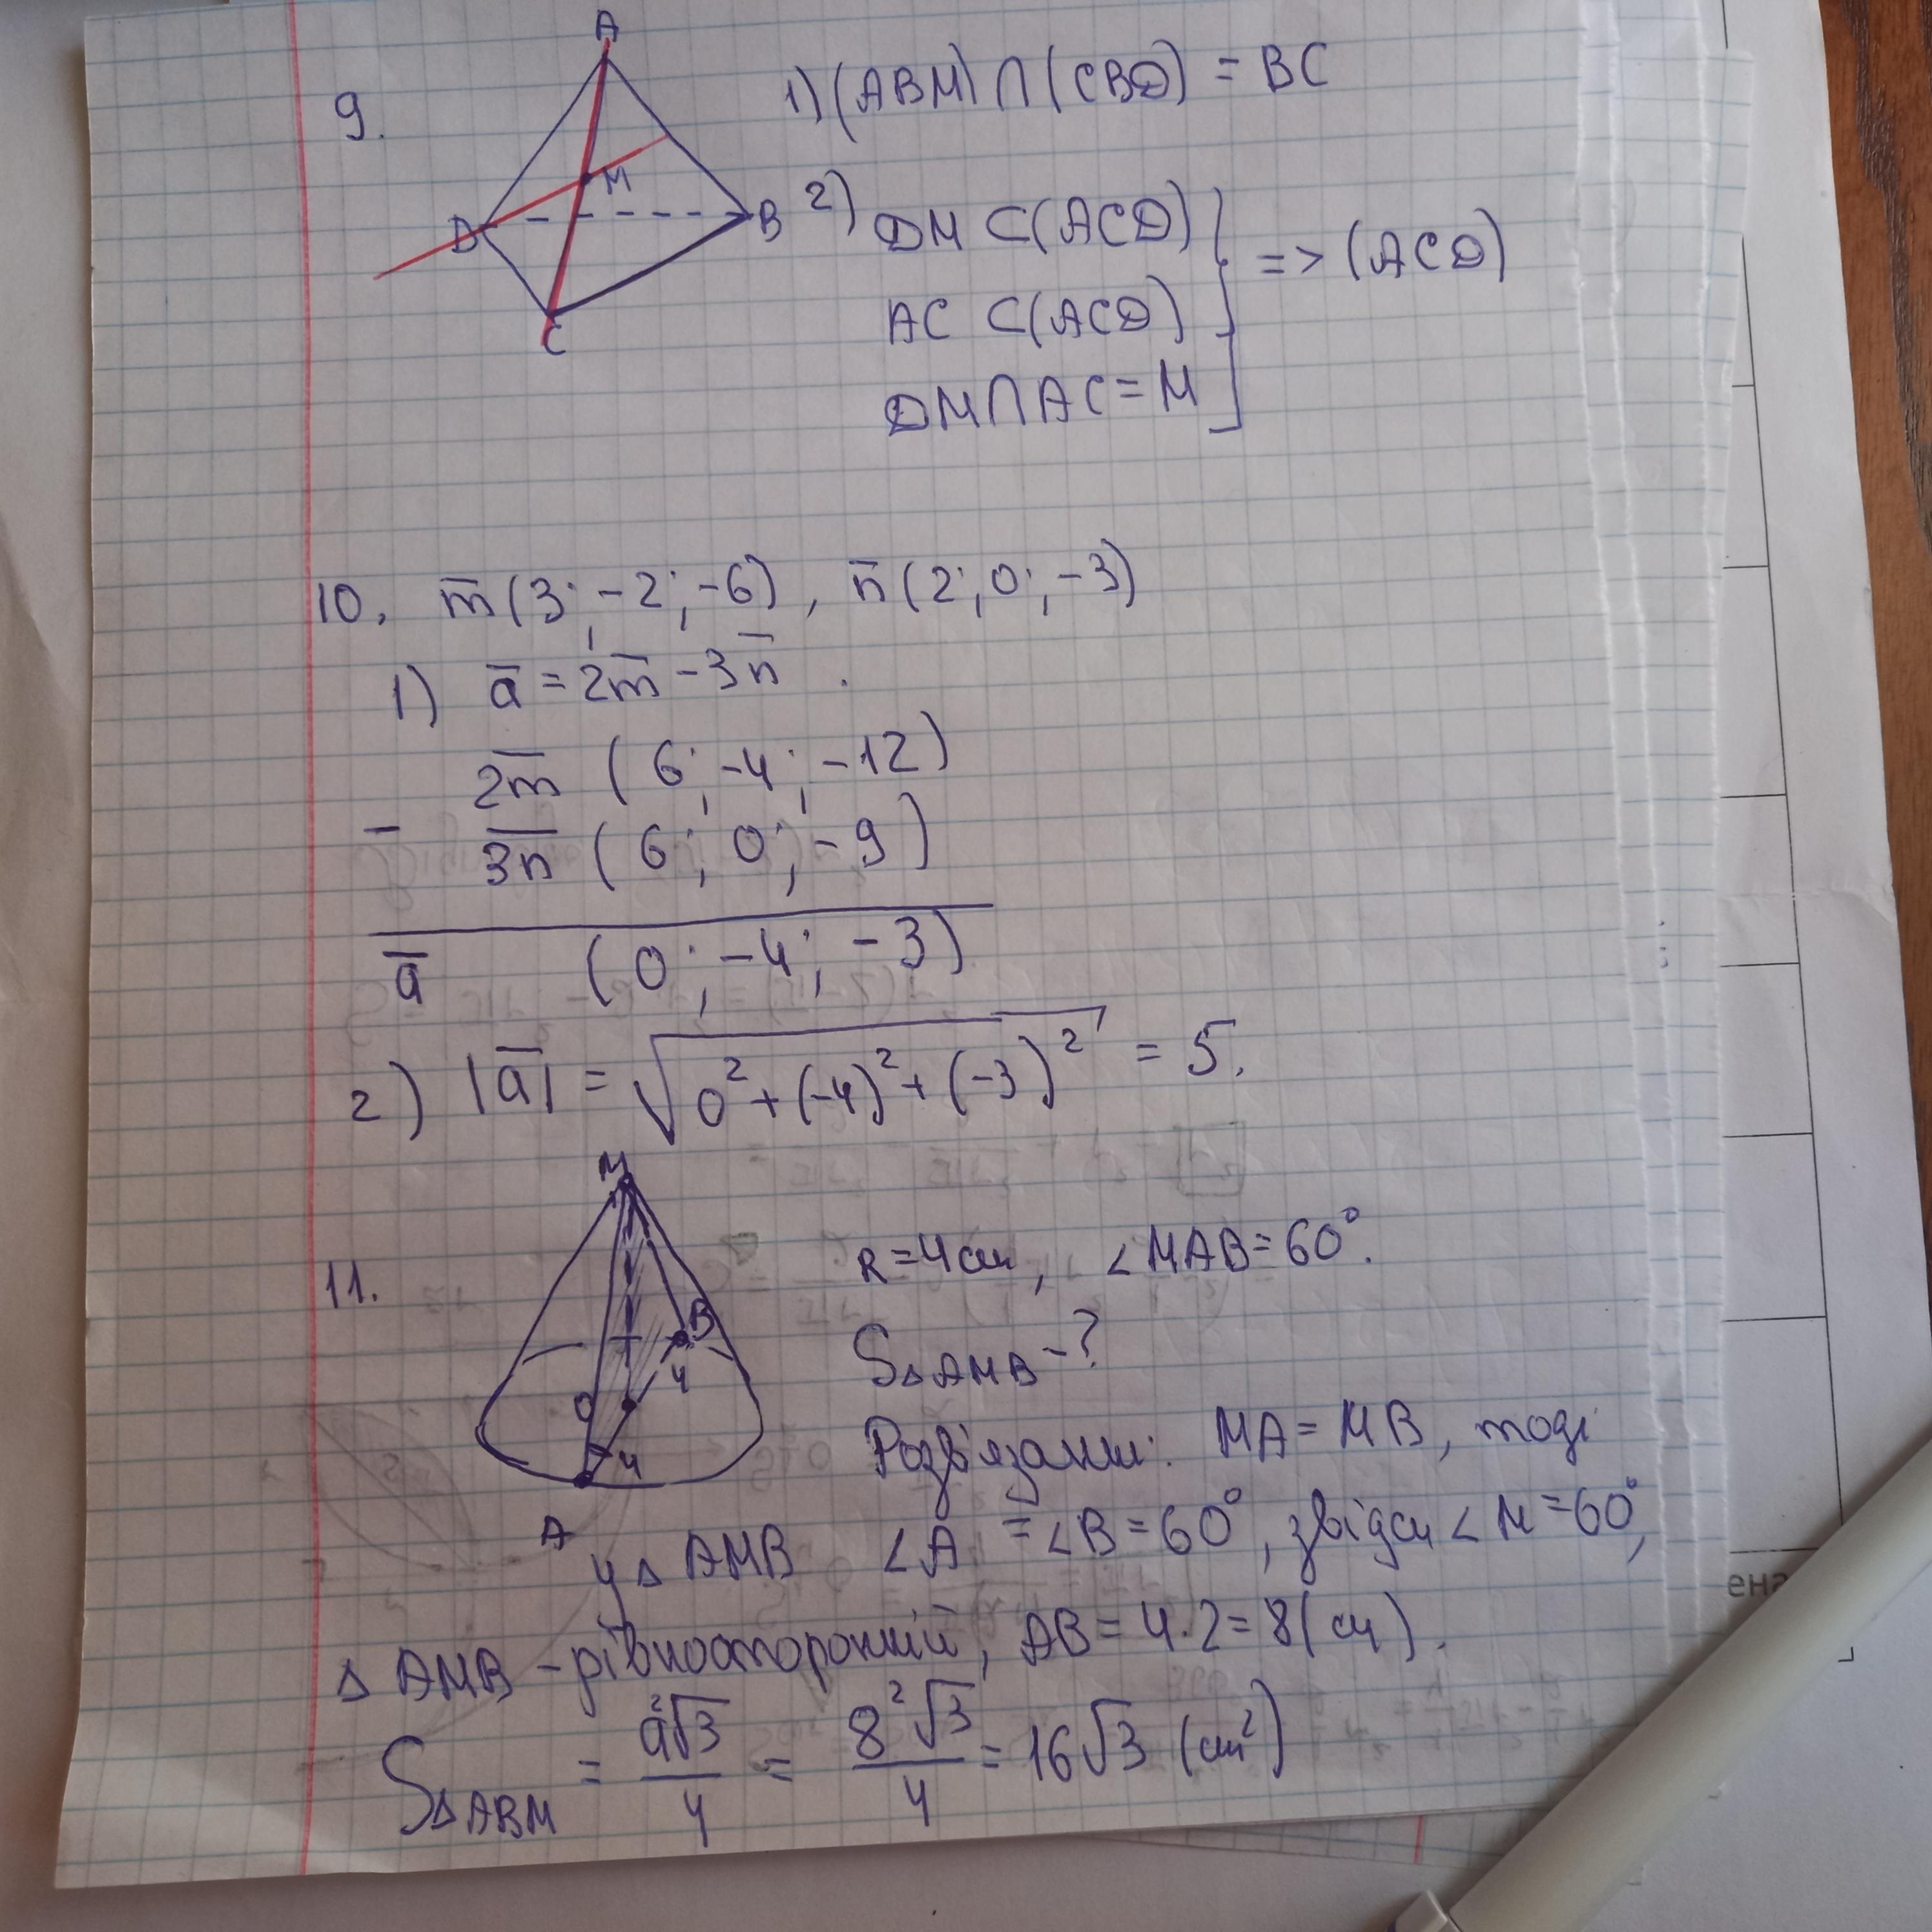 9.
A
M
D
B
C
1) (ABM) ∩ (CBD) = BC
2) DM ⊂ (ACD)
AC ⊂ (ACD)
DM ∩ AC = M
=> (ACD)
10. m̅ (3; -2; -6), n̅ (2; 0; -3)
1) a̅ = 2m̅ - 3n̅.
2m̅ (6; -4; -12)
- 3n̅ (6; 0; -9)
a̅ (0; -4; -3)
2) |a̅| = √(0² + (-4)² + (-3)²) = 5.
11.
M
B
4
O
4
A
R = 4 см, ∠MAB = 60°.
S△AMB - ?
Розв'язання: MA = MB, тоді
у △ AMB ∠A = ∠B = 60°, звідси ∠M = 60°,
△ AMB - рівносторонній, AB = 4·2 = 8 (см).
S△ABM = a²√3/4 = 8²√3/4 = 16√3 (см²)
ена